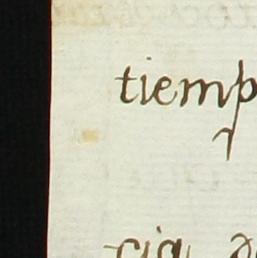 tiemp
cia